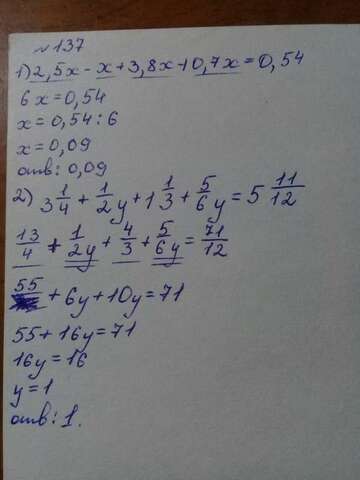 №137
1) 2,5x - x + 3,8x + 0,7x = 0,54
6x = 0,54
x = 0,54 : 6
x = 0,09
отв: 0,09
2) 3 1/4 + 1/2 y + 1 1/3 + 5/6 y = 5 11/12
13/4 + 1/2y + 4/3 + 5/6y = 71/12
55 + 6y + 10y = 71
55 + 16y = 71
16y = 16
y = 1
отв: 1.